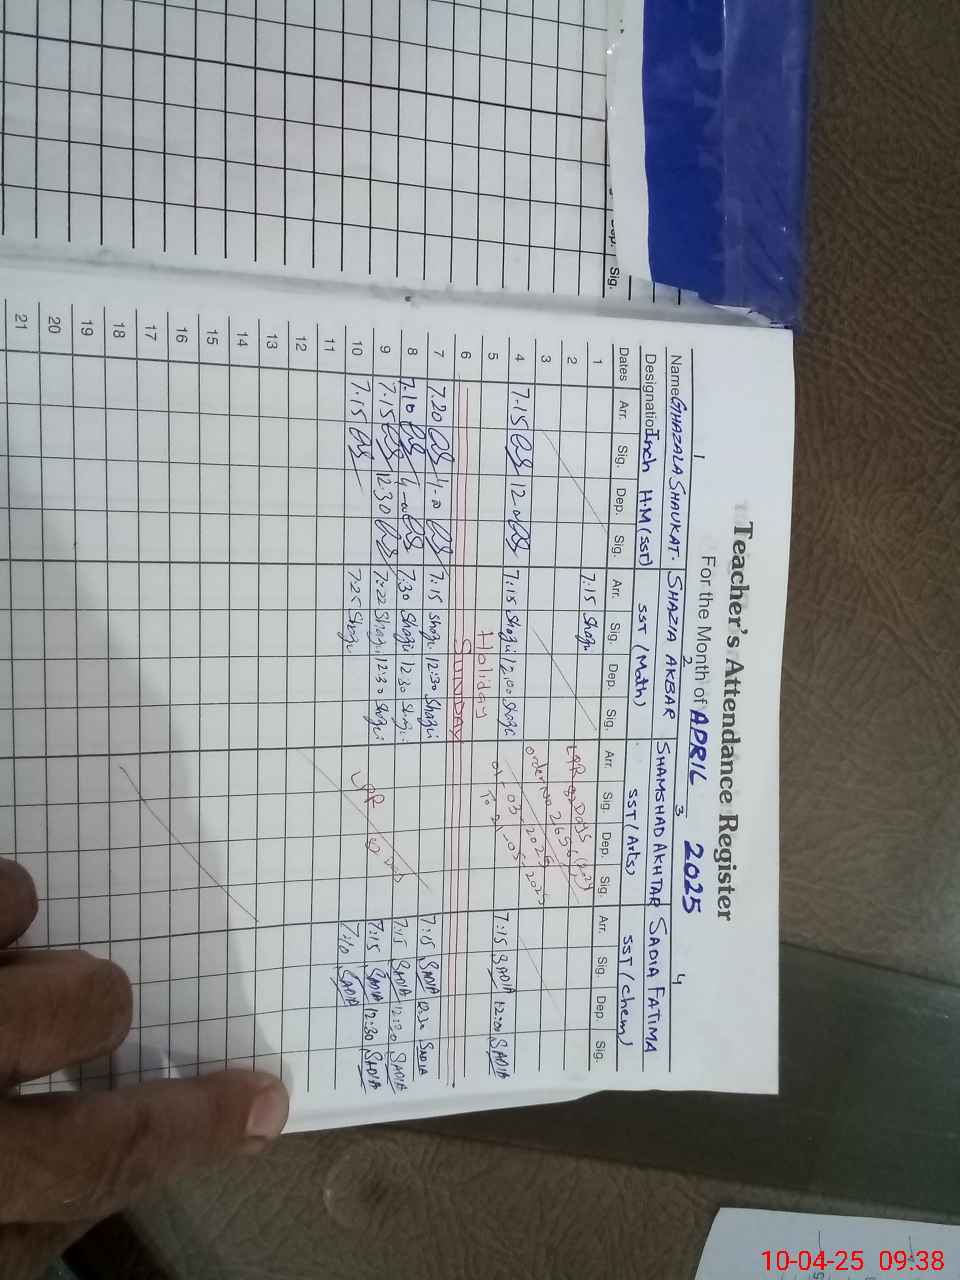 Sig.
Teacher's Attendance Register
For the Month of APRIL 2025
1 2 3 4
Name GHAZALA SHAUKAT. SHAZIA AKBAR SHAMSHAD AKHTAR SADIA FATIMA
Designation Inch H.M (SST) SST (Math) SST (Arts) SST (chem)
Dates Arr. Sig. Dep. Sig. Arr. Sig. Dep. Sig. Arr. Sig. Dep. Sig. Arr. Sig. Dep. Sig.
1 7:15 Shazi
2
3 order no
4 7.15 12-00 7:15 Shazi 12:00 Shazi 7:15 SADIA 12:00 SADIA
5 Holiday
6 SUNDAY
7 7.20 7:15 Shazi 12:30 Shazi 7:15 SADIA 12:30 SADIA
8 7.10 7:30 Shazi 12:30 Shazi 7:15 SADIA 12:30 SADIA
9 7.15 12.30 7:22 Shazi 12:30 Shazi 7:15 SADIA 12:30 SADIA
10 7.15 7:25 Shazi LPR 7:10 SADIA
11
12
13
14
15
16
17
18
19
20
21
10-04-25 09:38